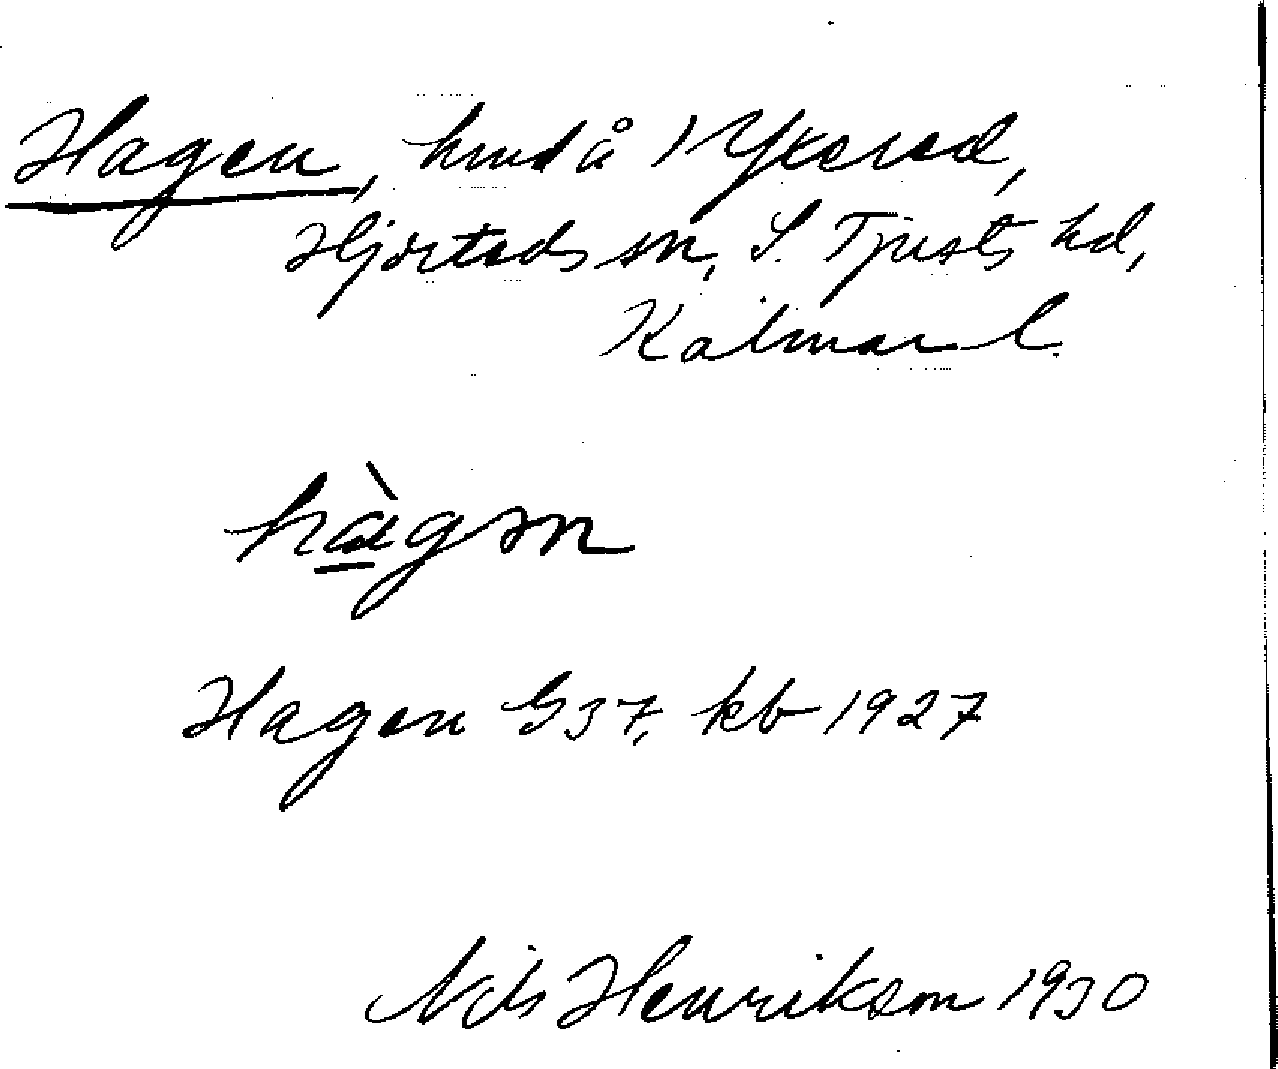 Hagen, hmd å 1 Yxered,
Hjorteds sn, S. Tjusts hd,
Kalmar l.
hàgən
Hagen G37, kb 1927
Nils Henrikson 1930